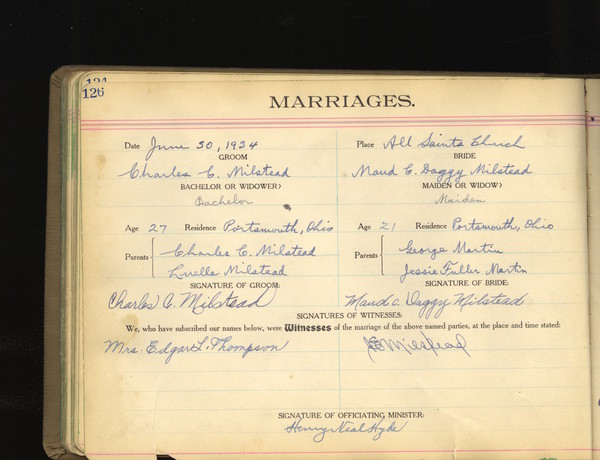 124
126
MARRIAGES.
Date June 30, 1934 Place All Saints Church
GROOM BRIDE
Charles C. Milstead Maud C. Daggy Milstead
BACHELOR OR WIDOWER? MAIDEN OR WIDOW?
Bachelor Maiden
Age 27 Residence Portsmouth, Ohio Age 21 Residence Portsmouth, Ohio
Parents Charles C. Milstead George Martin
Luella Milstead Parents Jessie Fuller Martin
SIGNATURE OF GROOM: SIGNATURE OF BRIDE:
Charles C. Milstead Maud C. Daggy Milstead
SIGNATURES OF WITNESSES:
We, who have subscribed our names below, were Witnesses of the marriage of the above named parties, at the place and time stated:
Mrs. Edgar L. Thompson Milstead
SIGNATURE OF OFFICIATING MINISTER:
Henry Neal Hyde